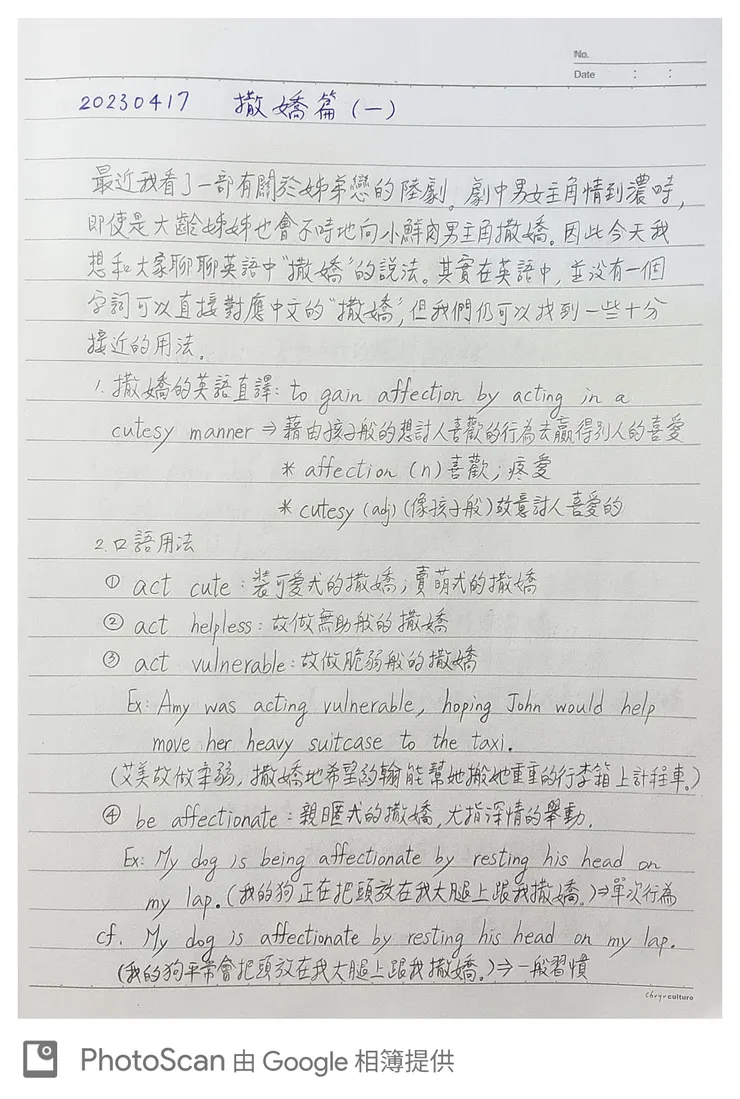 No.
Date : :
20230417 撒嬌篇(一)
最近我看了一部有關於姊弟戀的陸劇。劇中男女主角情到濃時,
即使是大齡姊姊也會不時地向小鮮肉男主角撒嬌。因此今天我
想和大家聊聊英語中“撒嬌”的說法。其實在英語中,並沒有一個
字詞可以直接對應中文的“撒嬌”,但我們仍可以找到一些十分
接近的用法。
1. 撒嬌的英語直譯: to gain affection by acting in a
cutesy manner ⇒ 藉由孩子般的想討人喜歡的行為去贏得別人的喜愛
* affection (n) 喜歡;疼愛
* cutesy (adj) (像孩子般)故意討人喜愛的
2. 口語用法
① act cute: 裝可愛式的撒嬌;賣萌式的撒嬌
② act helpless: 故做無助般的撒嬌
③ act vulnerable: 故做脆弱般的撒嬌
Ex: Amy was acting vulnerable, hoping John would help
move her heavy suitcase to the taxi.
(艾美故做柔弱,撒嬌地希望約翰能幫她搬她重重的行李箱上計程車。)
④ be affectionate: 親暱式的撒嬌,尤指深情的舉動.
Ex: My dog is being affectionate by resting his head on
my lap. (我的狗正在把頭放在我大腿上跟我撒嬌。)⇒單次行為
cf. My dog is affectionate by resting his head on my lap.
(我的狗平常會把頭放在我大腿上跟我撒嬌。)⇒一般習慣
PhotoScan 由 Google 相簿提供